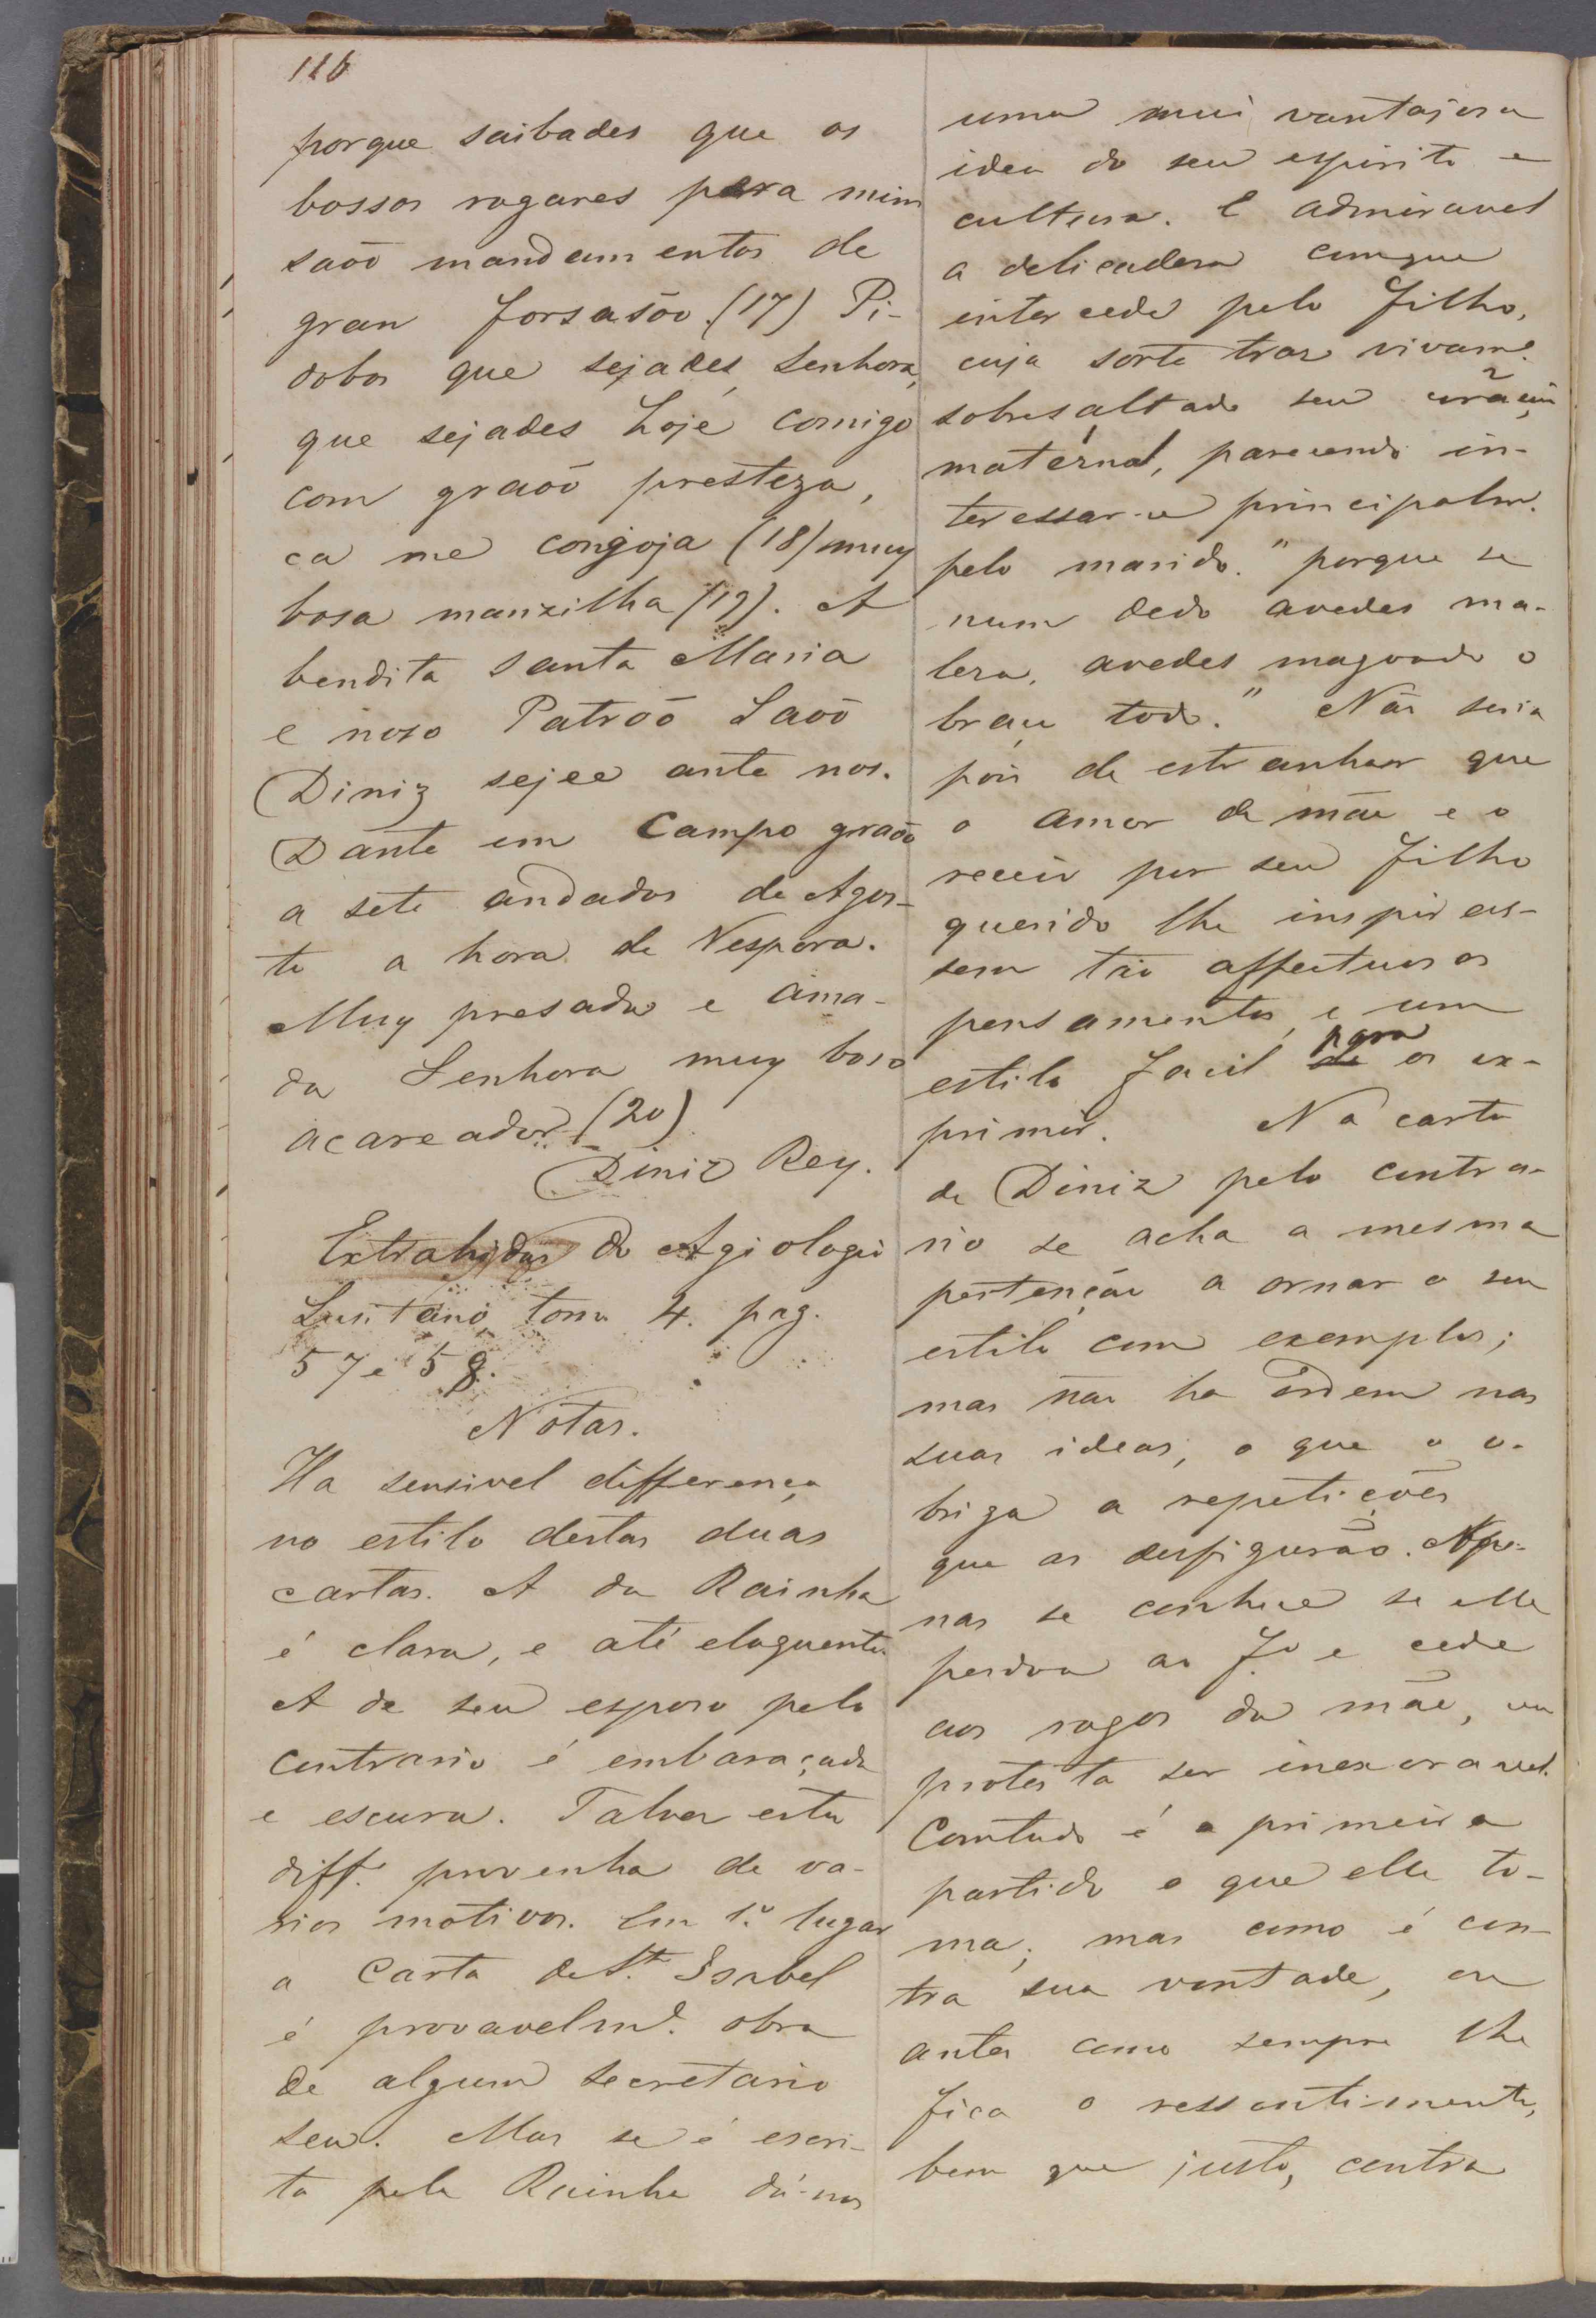 116
porque saibades que os
bossos rogares pera mim
saõo mandamentos de
gran forsasõo. (17) Pi-
dobos que sejades, Senhora,
que sejades hoje comigo
com graõo presteza,
ca me congoja (18) muy
bosa manzilha (19). A
bendita Santa Maria
e noso Patroõ Saõo
Diniz sejee ante nos.
Dante em Campo graõo
a sete andados de Agos-
to a hora de Vespora.
Muy presada e ama-
da Senhora muy boso
acareador (20)
Diniz Rey.
Extrahidas do Agiologio
Lusitano, tom. 4. pag.
57 e 58.
Notas.
Ha sensivel differença
no estilo destas duas
cartas. A da Rainha
é clara, e até eloquente.
A de seu esposo pelo
contrario é embaraçada
e escura. Talvez esta
diff.ª provenha de va-
rios motivos. Em 1.º lugar
a Carta de S.ta Isabel
é provavelm.e obra
de algum secretario
seu. Mas se é escri-
ta pela Rainha dá-nos
uma mui vantajosa
idea do seu espirito e
cultura. É admiravel
a delicadesa comque
intercede pelo filho,
cuja sorte traz vivam.e
sobresaltado seu corãção
maternal, parecendo in-
teressar-se principalm.e
pelo marido. "porque se
num dedo avedes ma-
lesa, avedes magoado o
braço todo." Não seria
pois de estranhar que
o amor de mãe e o
receio por seu filho
querido lhe inspiras-
sem tão affectuosos
pensamentos, e um
estilo facil para os ex-
primir. Na carta
de Diniz pelo contra-
rio se acha a mesma
pertenção a ornar o seu
estilo com exemplos;
mas não ha ordem nas
suas ideas, o que o o-
briga a repetições
que as desfigurão. Ape-
nas se conhece se elle
perdoa ao f.º e cede
aos rogos da mãe, ou
protesta ser inexoravel.
Comtudo é o primeiro
partido o que elle to-
ma; mas como é con-
tra sua vontade, ou
antes como sempre lhe
fica o ressentimento,
bem que justo, contra